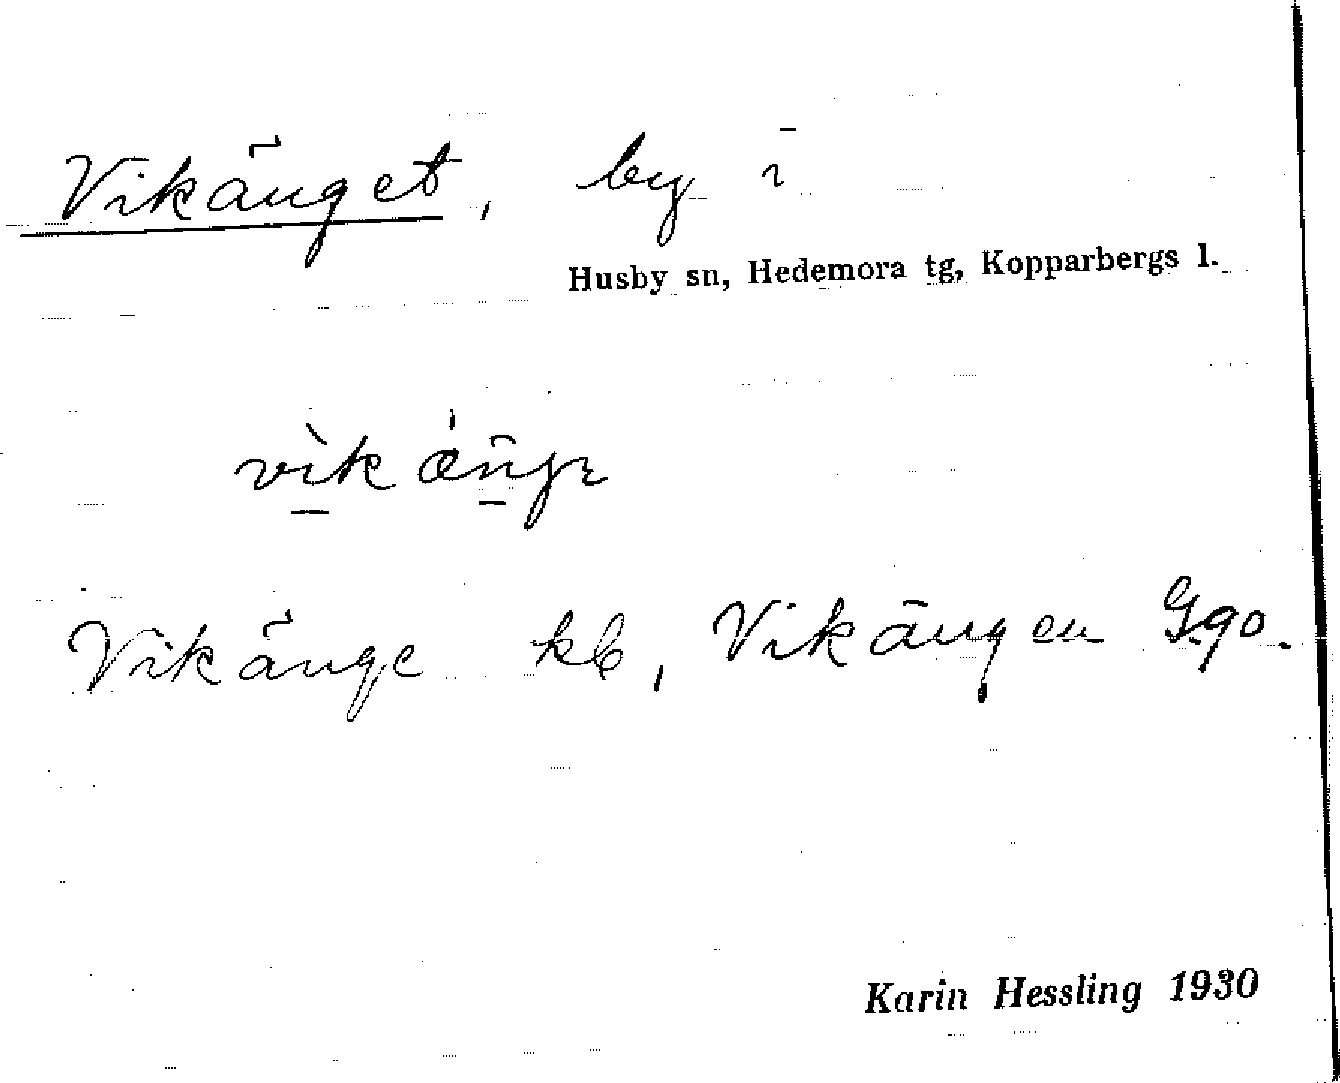 Vikänget, by i
Husby sn, Hedemora tg, Kopparbergs l.
Vikänge kb, Vikängen Ggo.
Karin Hessling 1930